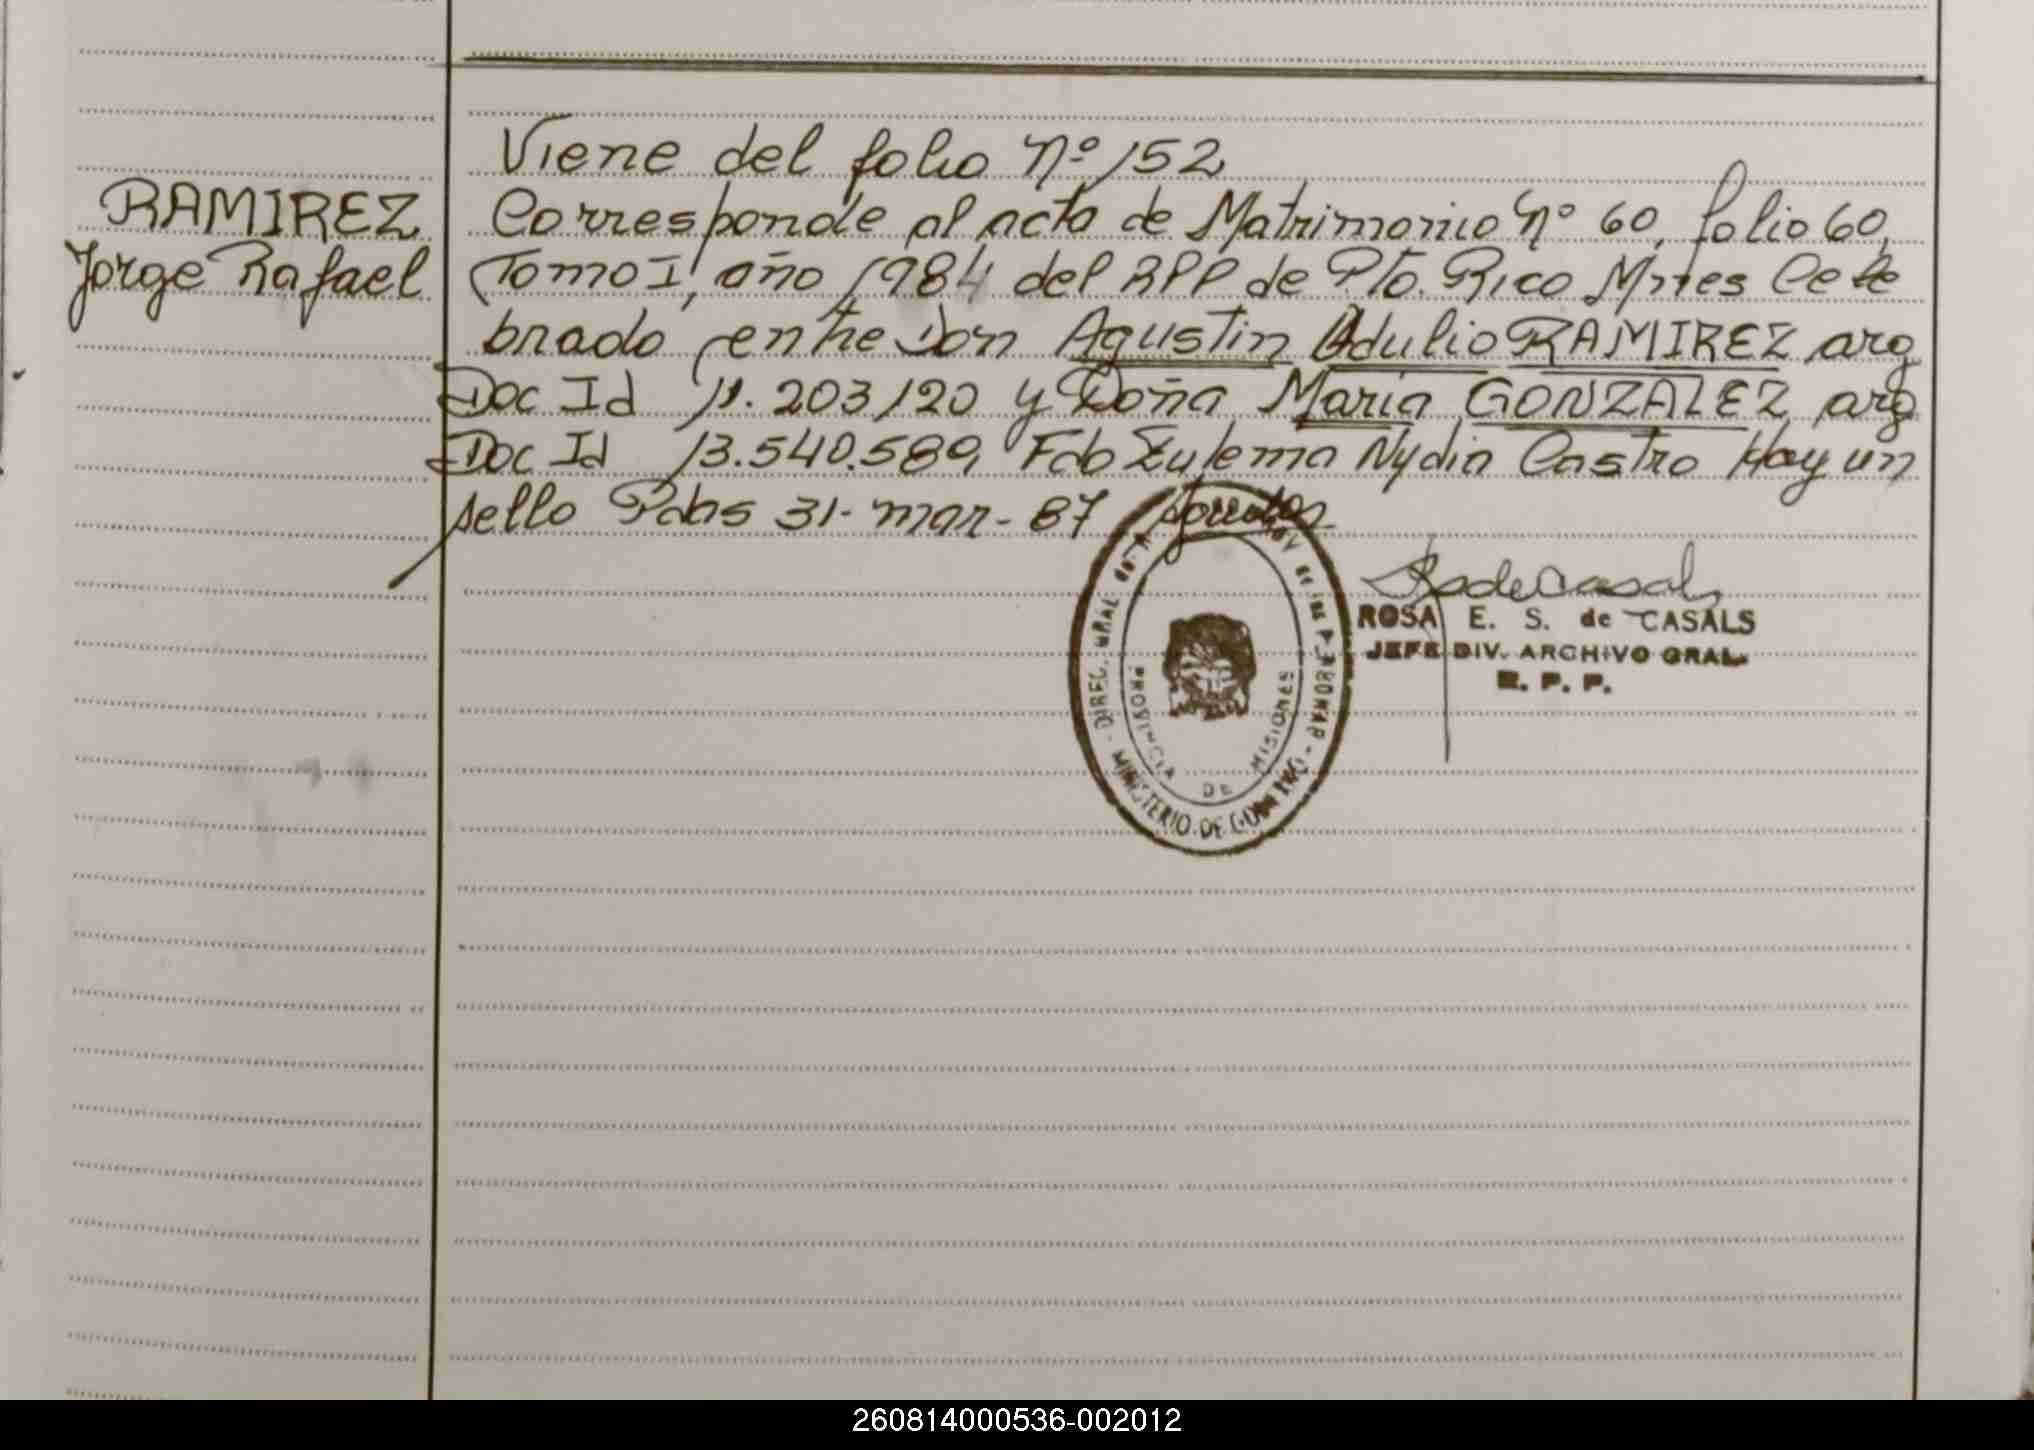 Viene del folio Nº 152
RAMIREZ
Jorge Rafael
Corresponde al acta de Matrimonio Nº 60, folio 60,
Tomo I, año 1984 del RPP de Pto. Rico Mnes Cele
brado entre Don Agustin Odulio RAMIREZ arg
Doc Id 11.203120 y Doña Maria GONZALEZ arg
Doc Id 13.540.589, Fdo Zulema Nydia Castro Hay un
sello Pdas 31-mar-87
ROSA E. S. de CASALS
JEFE DIV. ARCHIVO GRAL.
R. P. P.
DIREC. GRAL. DE LAS
PROVINCIA DE MISIONES
MINISTERIO DE GOBIERNO
260814000536-002012